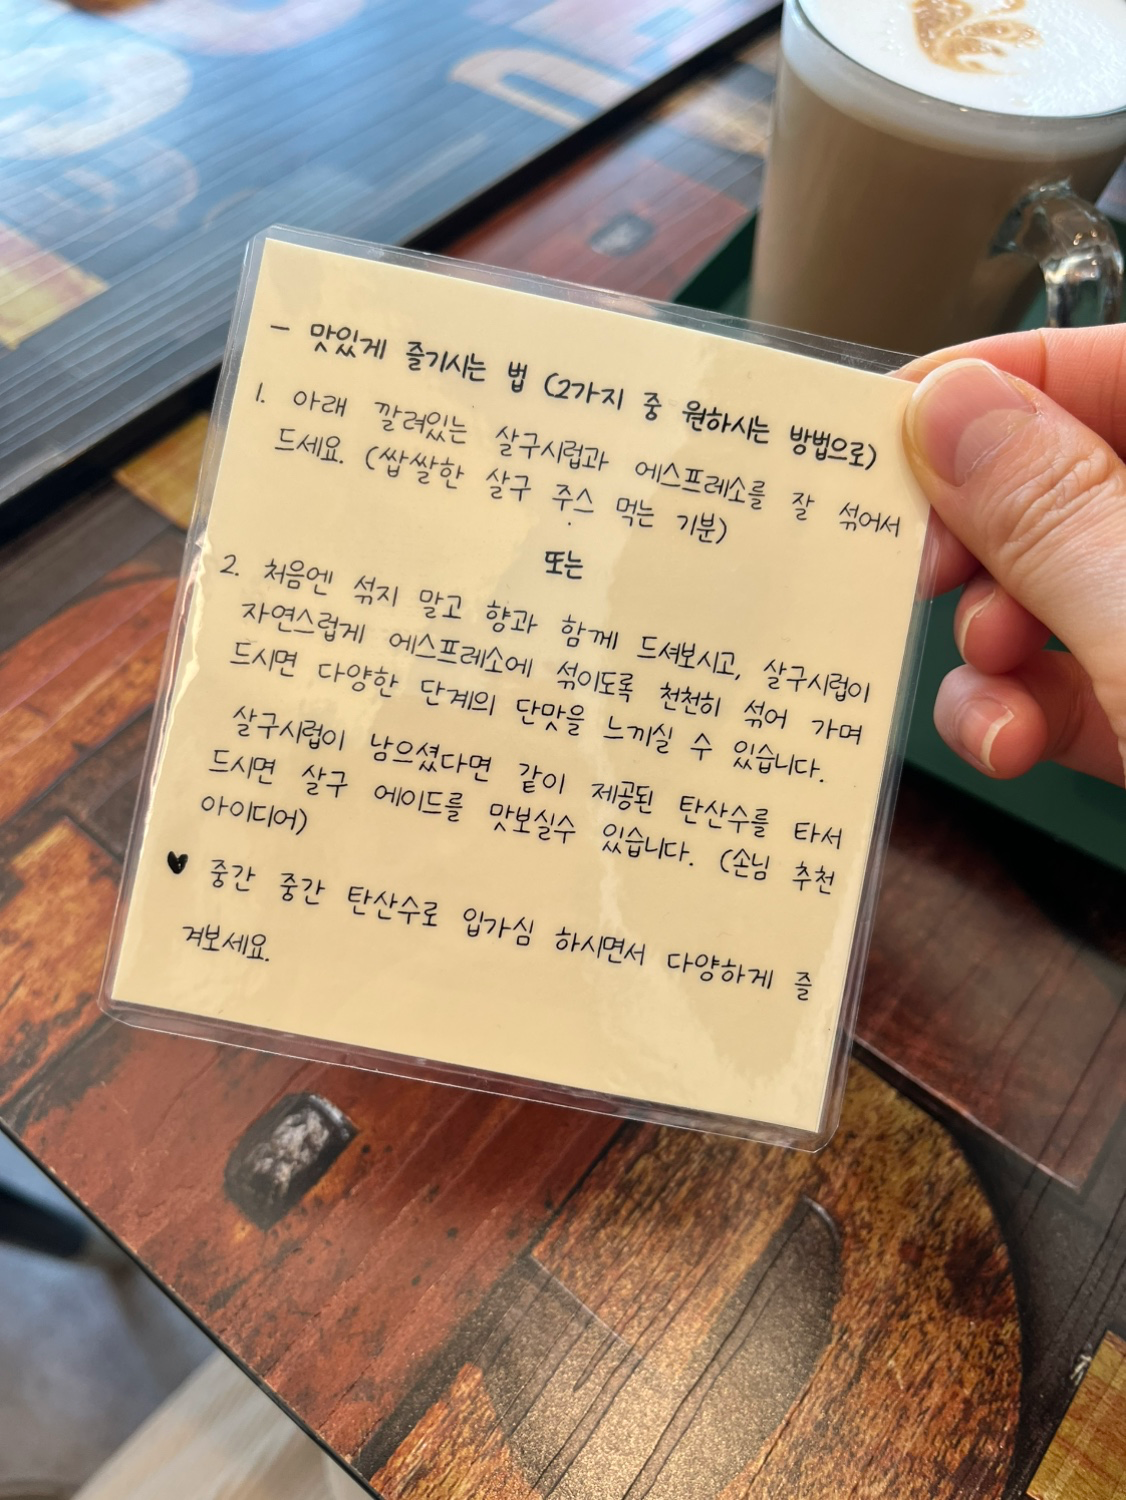 - 맛있게 즐기시는 법 (2가지 중 원하시는 방법으로)
1. 아래 깔려있는 살구시럽과 에스프레소를 잘 섞어서
드세요. (쌉쌀한 살구 주스 먹는 기분)
또는
2. 처음엔 섞지 말고 향과 함께 드셔보시고, 살구시럽이
자연스럽게 에스프레소에 섞이도록 천천히 섞어 가며
드시면 다양한 단계의 단맛을 느끼실 수 있습니다.
살구시럽이 남으셨다면 같이 제공된 탄산수를 타서
드시면 살구 에이드를 맛보실수 있습니다. (손님 추천
아이디어)
♥ 중간 중간 탄산수로 입가심 하시면서 다양하게 즐
겨보세요.